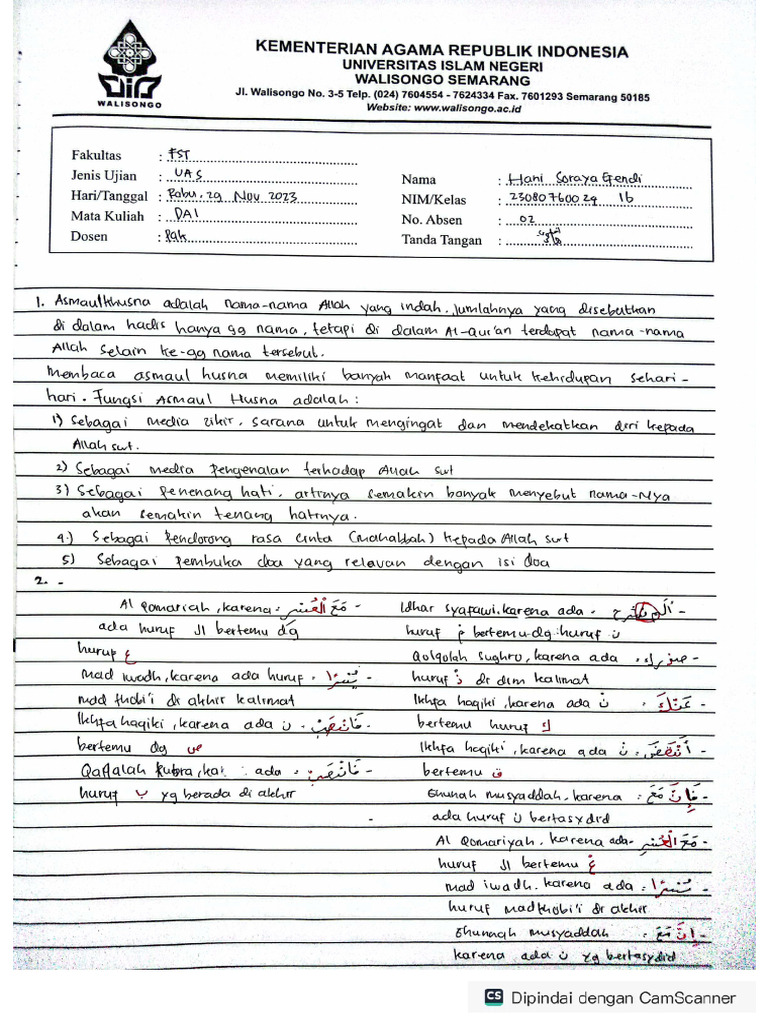 WALISONGO
KEMENTERIAN AGAMA REPUBLIK INDONESIA
UNIVERSITAS ISLAM NEGERI
WALISONGO SEMARANG
Jl. Walisongo No. 3-5 Telp. (024) 7604554 - 7624334 Fax. 7601293 Semarang 50185
Website: www.walisongo.ac.id
Fakultas : FST
Jenis Ujian : UAS
Hari/Tanggal : Rabu, 29 Nov 2023
Mata Kuliah : DAI
Dosen : Pak
Nama : Hani Soraya Efendi
NIM/Kelas : 2308076029 1b
No. Absen : 02
Tanda Tangan :
1. Asmaulkhusna adalah nama-nama Allah yang indah. Jumlahnya yang disebutkan
di dalam hadis hanya 99 nama, tetapi di dalam Al-Qur'an terdapat nama-nama
Allah selain ke-99 nama tersebut.
Membaca asmaul husna memiliki banyak manfaat untuk kehidupan sehari-
hari. Fungsi Asmaul Husna adalah :
1) Sebagai media zikir, sarana untuk mengingat dan mendekatkan diri kepada
Allah swt.
2) Sebagai media pengenalan terhadap Allah swt
3) Sebagai penenang hati, artinya semakin banyak menyebut nama-Nya
akan semakin tenang hatinya.
4) Sebagai pendorong rasa cinta (mahabbah) kepada Allah swt
5) Sebagai pembuka doa yang relavan dengan isi doa
2. -
Al Qomariah, karena : مَعَ الْعُسْرِ -
ada huruf ال bertemu dg
huruf ع
mad iwadh, karena ada huruf : يُسْرًا -
mad thobi'i di akhir kalimat
Ikhfa haqiki, karena ada ن : فَانْصَبْ -
bertemu dg ص
Qalqalah kubra, kar ada : فَانْصَبْ -
huruf ب yg berada di akhir
Idhar syafawi. karena ada : أَلَمْ نَشْرَحْ -
huruf م bertemu dg huruf ن
Qolqolah sughro, karena ada :
huruf د di dlm kalimat
Ikhfa haqiki, karena ada ن : عَنْكَ -
bertemu huruf ك
Ikhfa haqiki, karena ada ن : أَنْقَضَ -
bertemu ق
Ghunah musyaddah, karena : فَإِنَّ مَعَ -
ada huruf ن bertasydid
Al Qomariyah, karena ada : مَعَ الْعُسْرِ -
huruf ال bertemu غ
mad iwadh, karena ada : يُسْرًا -
huruf mad thobi'i di akhir
Ghunnah musyaddah : إِنَّ مَعَ -
karena ada ن yg bertasydid
CS Dipindai dengan CamScanner